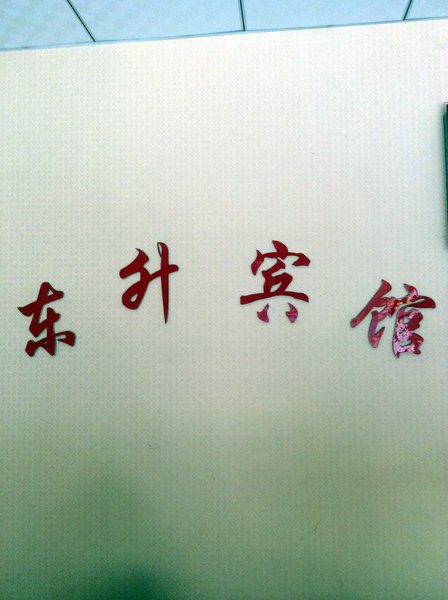 东升宾馆